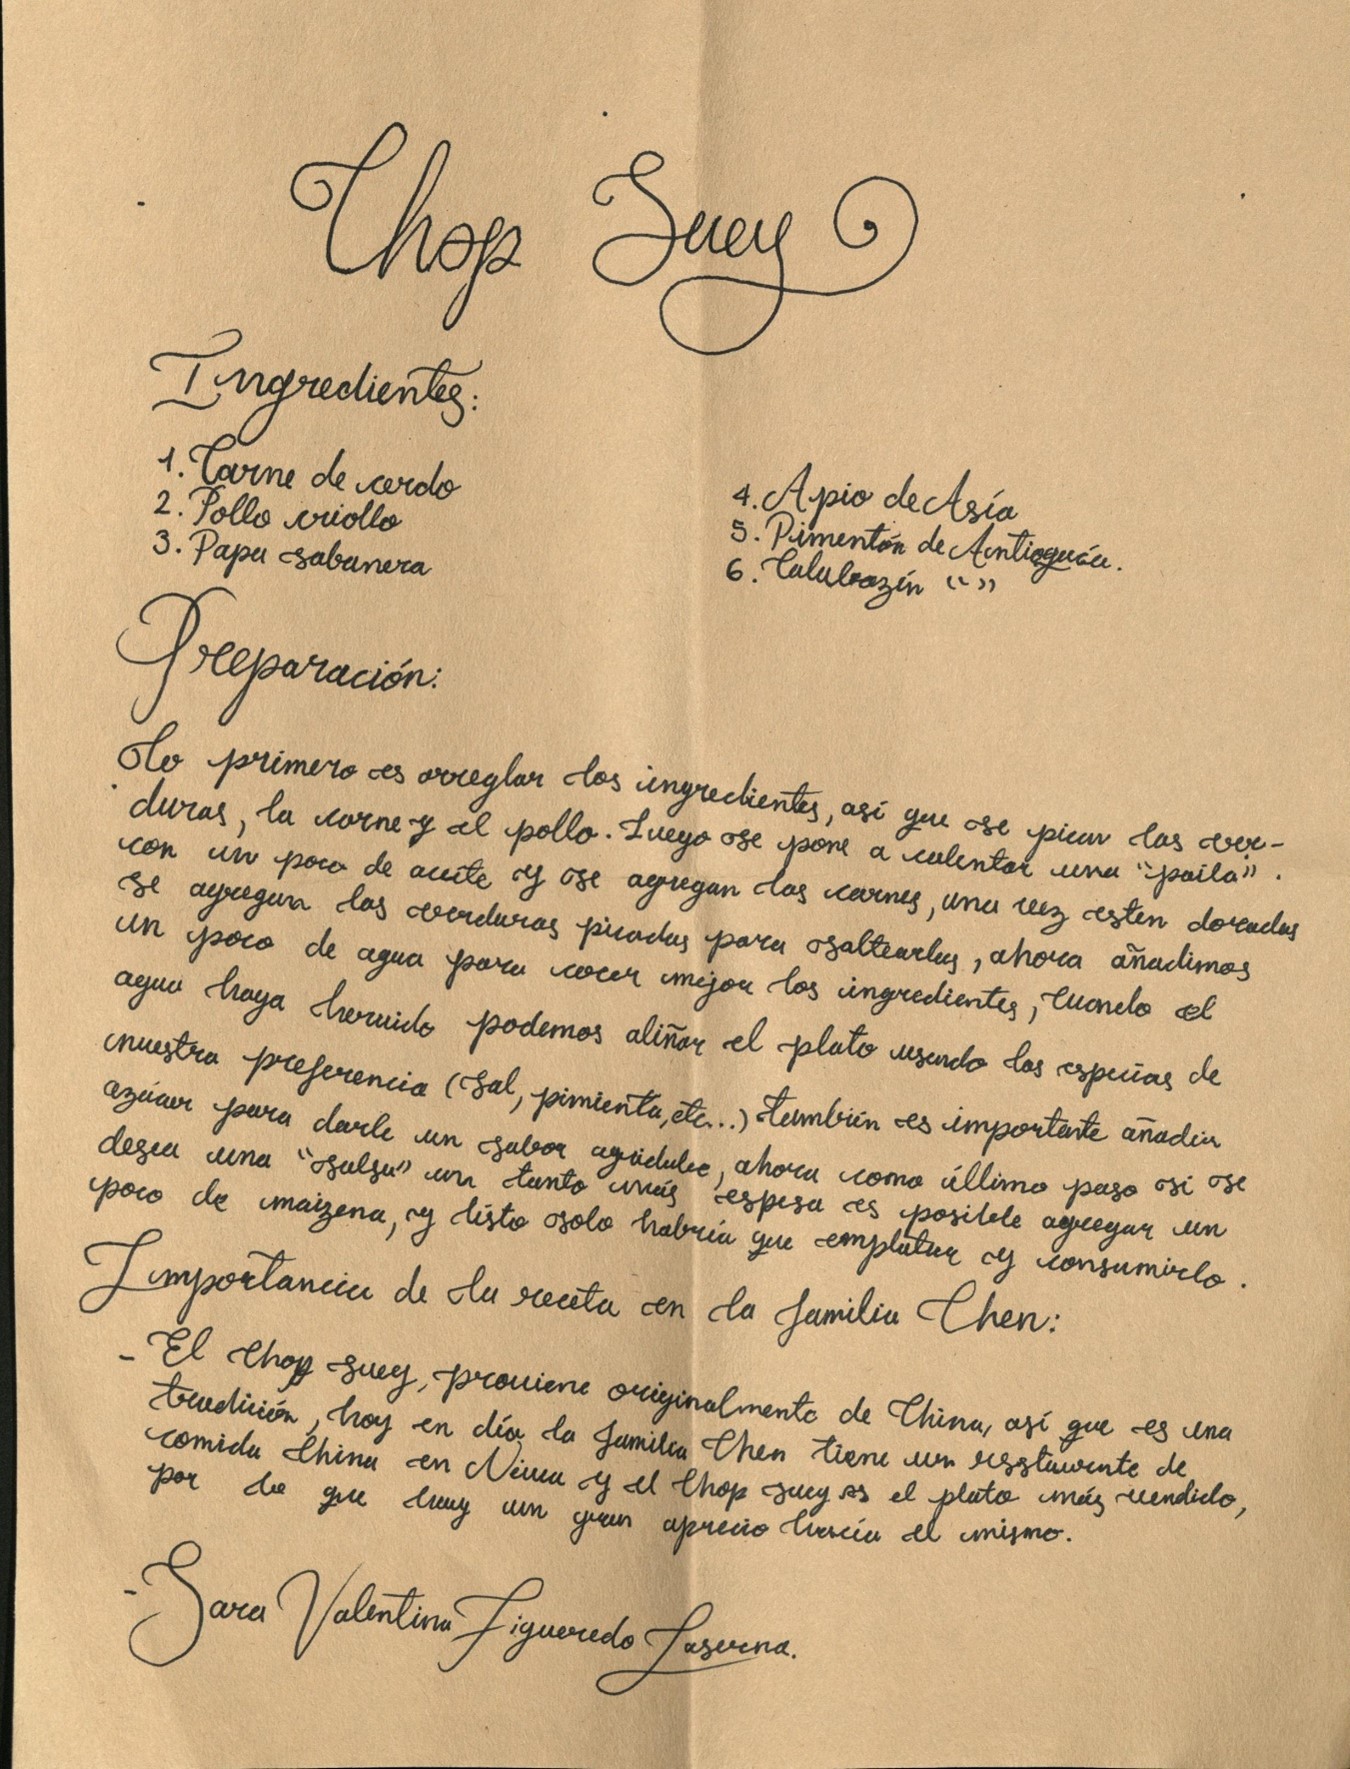 Chop Suey
Ingredientes:
1. Carne de cerdo
2. Pollo criollo
3. Papa sabanera
4. Apio de Asía
5. Pimentón de Antioquía.
6. Calabazín “ ”
Preparación:
Lo primero es arreglar los ingredientes, así que se pican las ver-
duras, la carne y el pollo. Luego se pone a calentar una "paila".
con un poco de aceite y se agregan las carnes, una vez esten doradas
se agregan las verduras picadas para saltearlas, ahora añadimos
un poco de agua para cocer mejor los ingredientes, cuando el
agua haya hervido podemos aliñar el plato usando las especias de
nuestra preferencia (sal, pimienta, etc...) también es importante añadir
azúcar para darle un sabor agridulce, ahora como último paso si se
desea una "salsa" un tanto más espesa es posible agregar un
poco de maizena, y listo solo habría que emplatar y consumirlo.
Importancia de la receta en la familia Chen:
- El Chop suey, proviene originalmente de China, así que es una
tradición, hoy en día la familia Chen tiene un restaurante de
comida China en Neiva y el Chop suey es el plato más vendido,
por lo que hay un gran aprecio hacía el mismo.
- Sara Valentina Figueredo Laserna.